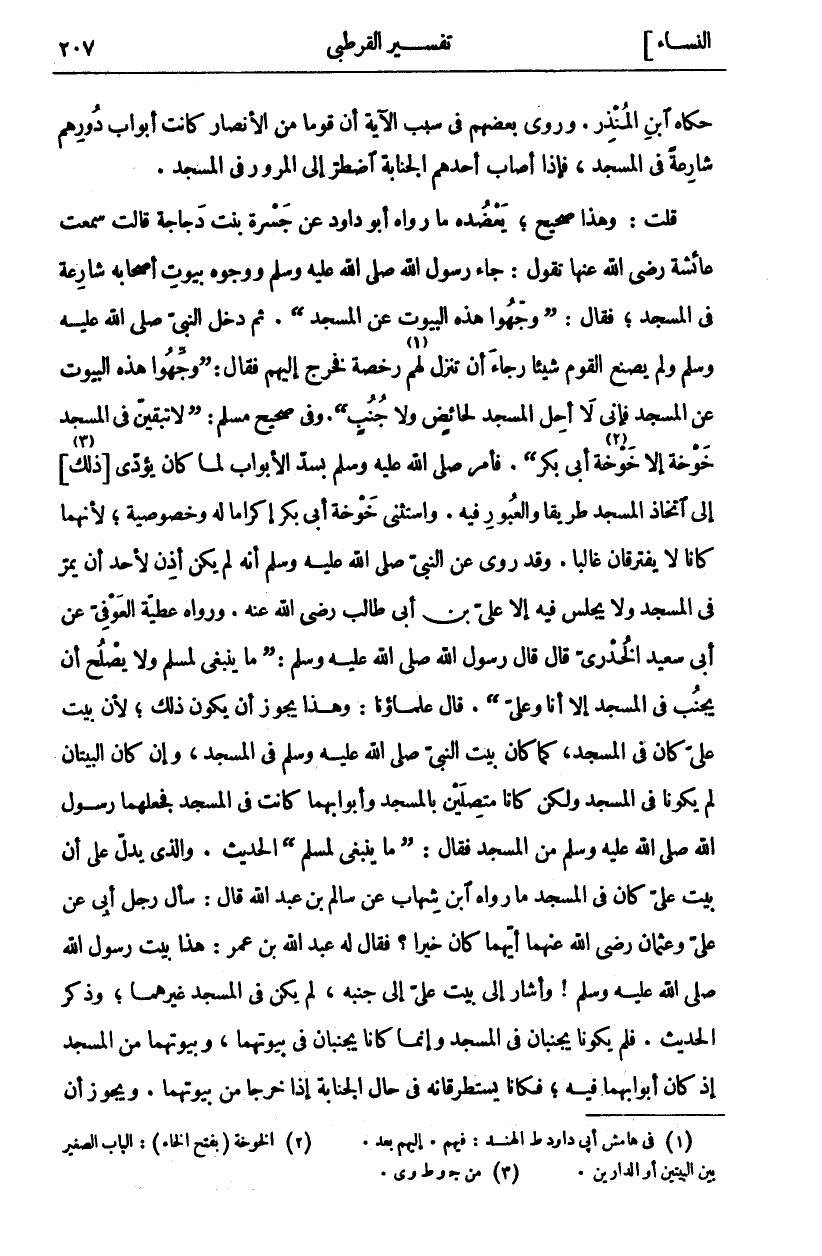 النساء ] تفسير القرطبى ٢٠٧
حكاه ٱبنِ المُنْذِر . وروى بعضهم فى سبب الآية أن قوما من الأنصار كانت أبواب دُورِهم
شارِعةً فى المسجد ، فإذا أصاب أحدهم الجنابة ٱضطرّ إلى المرور فى المسجد .
قلت : وهذا صحيح ؛ يَعْضُده ما رواه أبو داود عن جَسْرة بنت دَجاجة قالت سمعت
عائشة رضى الله عنها تقول : جاء رسول الله صلى الله عليه وسلم ووجوه بيوتِ أصحابه شارِعة
فى المسجد ؛ فقال : ” وجّهُوا هذه البيوت عن المسجد “ . ثم دخل النبىّ صلى الله عليه
وسلم ولم يصنع القوم شيئا رجاءَ أن تنزل لهم (١) رخصة فخرج إليهم فقال : ”وجِّهُوا هذه البيوت
عن المسجد فإنى لَا أحِل المسجد لحائضٍ ولا جُنُبٍ“. وفى صحيح مسلم : ”لاتبقينّ فى المسجد
خَوْخة إلا خَوْخة (٢) أبى بكر“ . فأمر صلى الله عليه وسلم بسدّ الأبواب لما كان يؤدّى [ذلك] (٣)
إلى ٱتخاذ المسجد طريقا والعُبورِ فيه . واستثنى خَوْخة أبى بكر إكراما له وخصوصية ؛ لأنهما
كانا لا يفترقان غالبا . وقد روى عن النبىّ صلى الله عليه وسلم أنه لم يكن أذِن لأحد أن يمرّ
فى المسجد ولا يجلس فيه إلا علىّ بن أبى طالب رضى الله عنه . ورواه عطيّة العَوْفِىّ عن
أبى سعيد الخُدْرىّ قال قال رسول الله صلى الله عليه وسلم : ” ما ينبغى لمسلم ولا يصْلُح أن
يجنُب فى المسجد إلا أنا وعلىّ “ . قال علماؤنا : وهذا يجوز أن يكون ذلك ؛ لأن بيت
علىّ كان فى المسجد، كما كان بيت النبىّ صلى الله عليه وسلم فى المسجد ، وإن كان البيتان
لم يكونا فى المسجد ولكن كانا متصِلَيْن بالمسجد وأبوابهما كانت فى المسجد فجعلهما رسول
الله صلى الله عليه وسلم من المسجد فقال : ” ما ينبغى لمسلم “ الحديث . والذى يدلّ على أن
بيت علىّ كان فى المسجد ما رواه ٱبن شهاب عن سالم بن عبد الله قال : سأل رجل أبِى عن
علىّ وعثمان رضى الله عنهما أيّهما كان خيرا ؟ فقال له عبد الله بن عمر : هذا بيت رسول الله
صلى الله عليه وسلم ! وأشار إلى بيت علىّ إلى جنبه ، لم يكن فى المسجد غيرهما ؛ وذكر
الحديث . فلم يكونا يجنبان فى المسجد وإنما كانا يجنبان فى بيوتهما ، وبيوتهما من المسجد
إذ كان أبوابهما فيه ؛ فكانا يستطرقانه فى حال الجنابة إذا خرجا من بيوتهما . ويجوز أن
(١) فى هامش أبى داود ط الهند : فيهم . إليهم بعد . (٢) الخوخة (بفتح الخاء) : الباب الصغير
بين البيتين أو الدارين . (٣) من جـ و ط و ى .